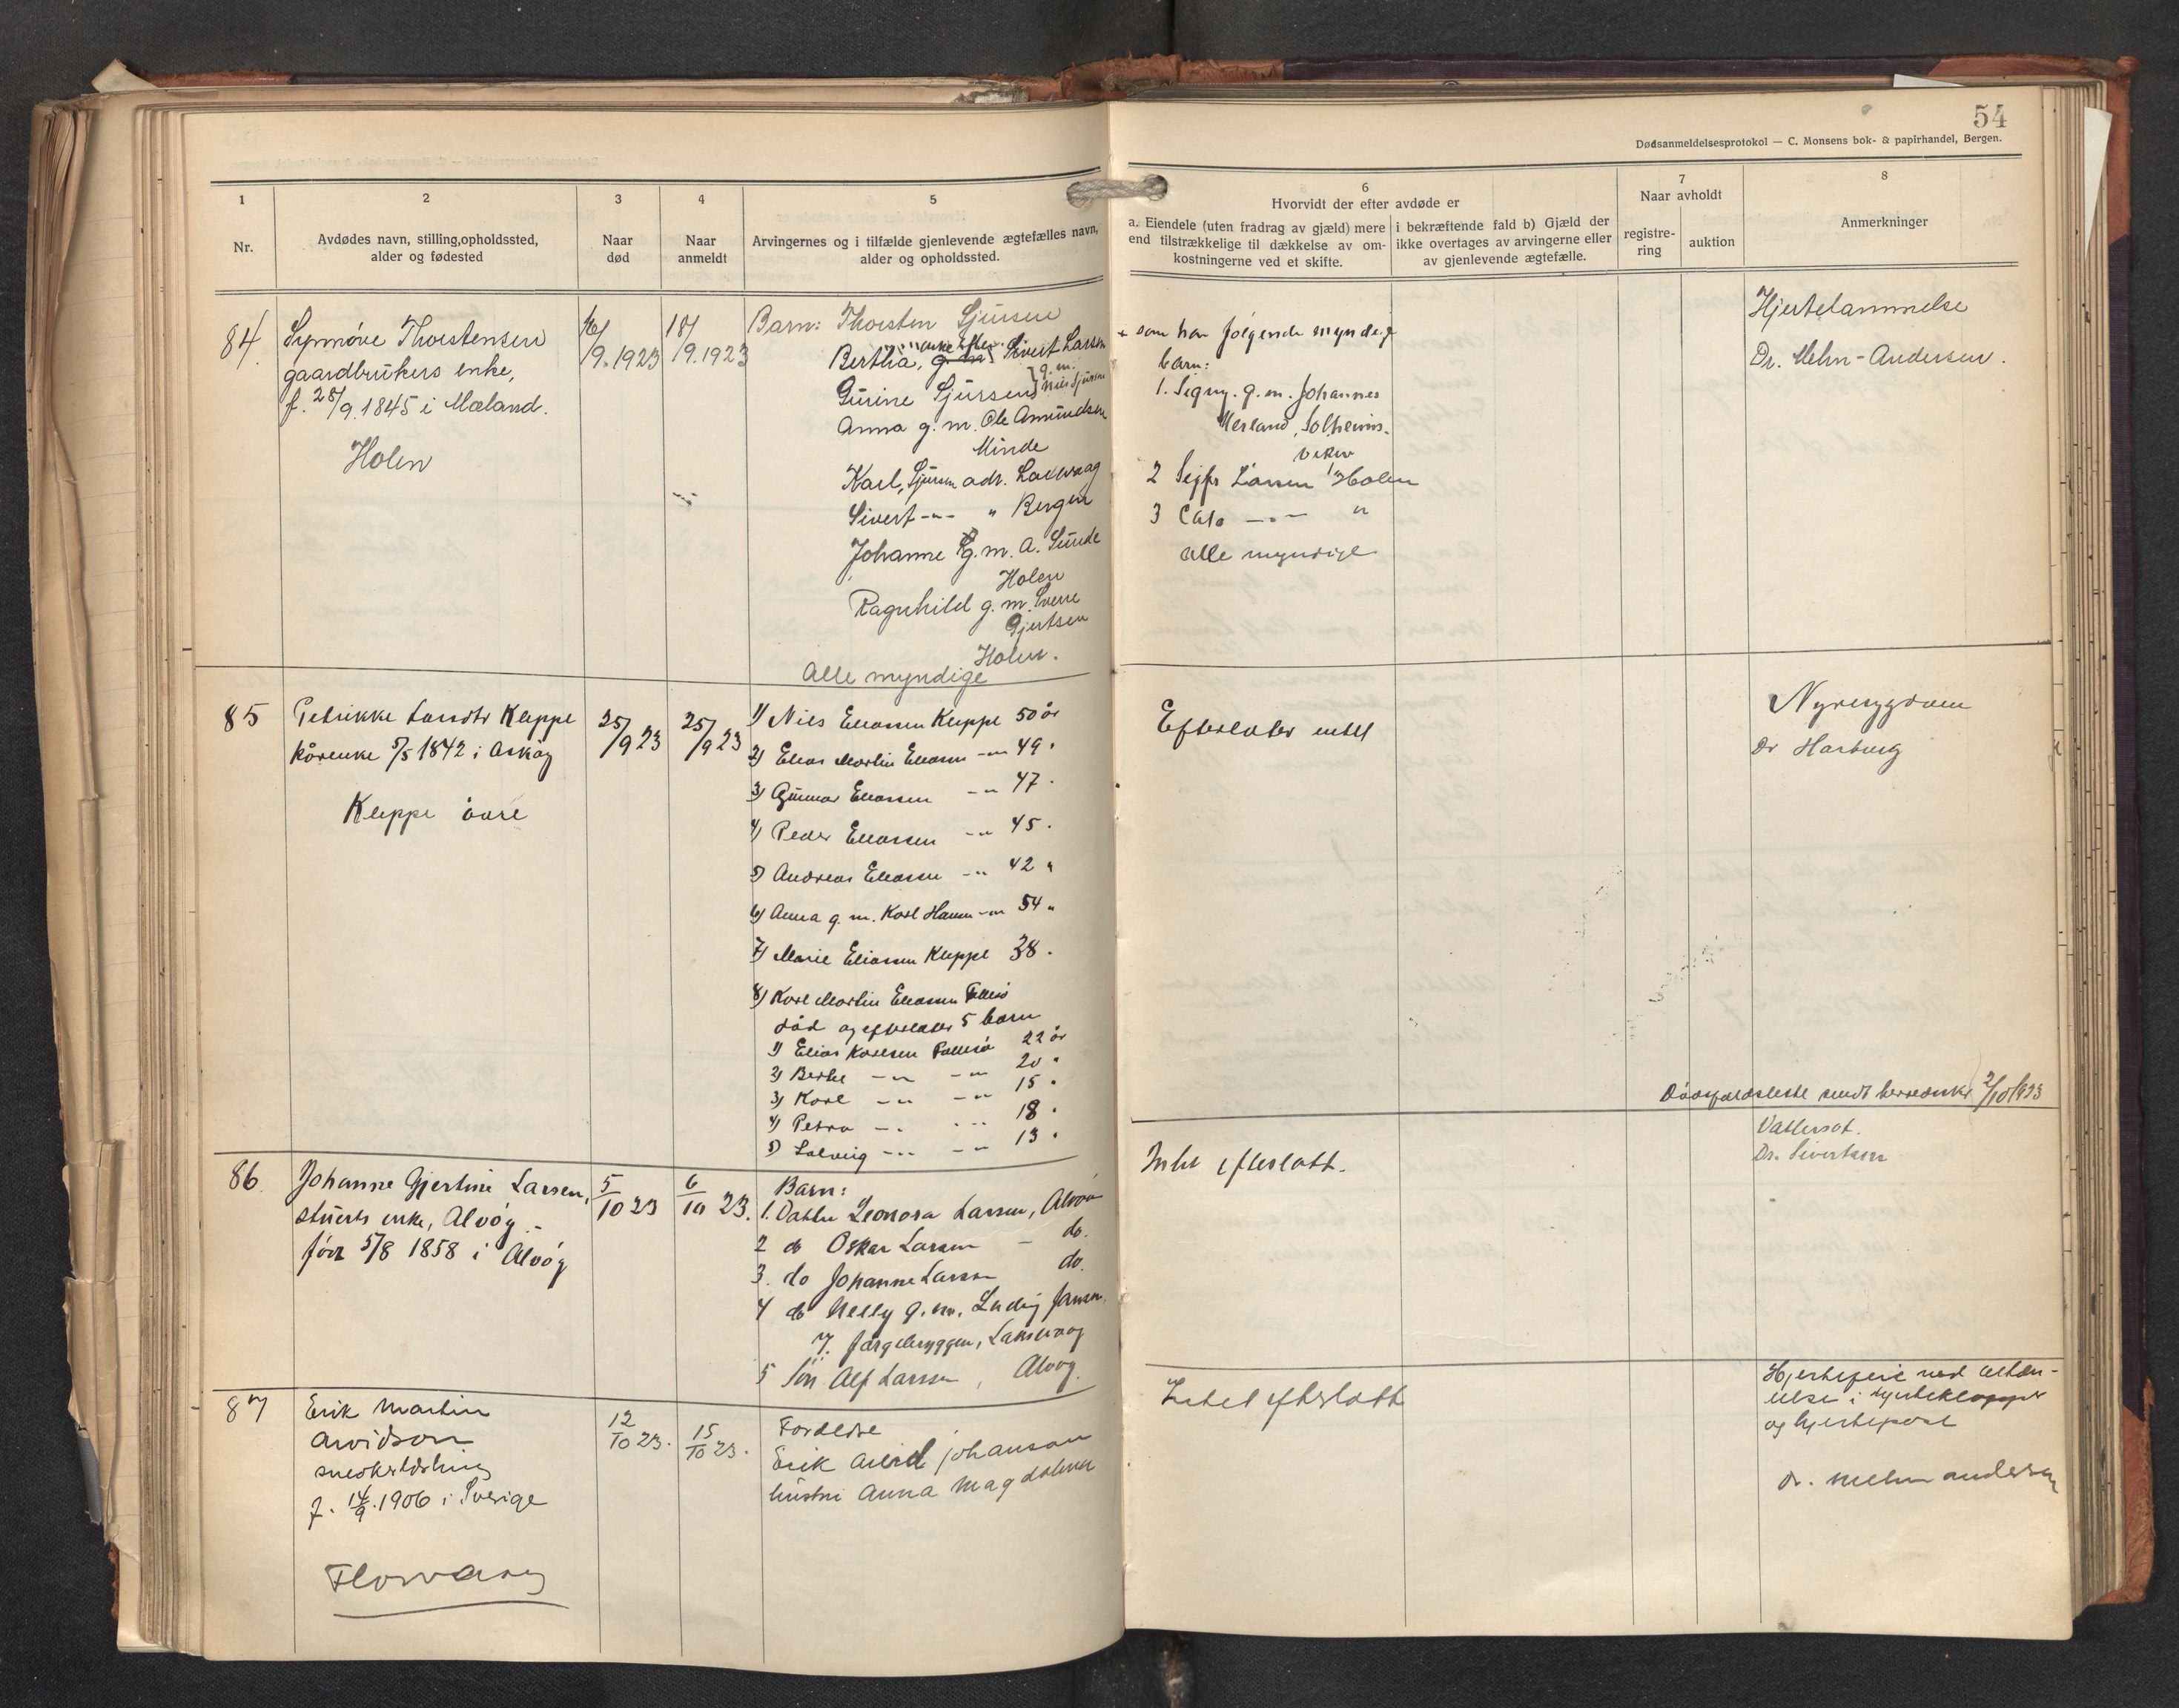 54
Dødsanmeldelsesprotokol — C. Monsens bok- & papirhandel, Bergen.
1
Nr.
2
Avdødes navn, stilling, opholdssted,
alder og fødested
3
Naar
død
4
Naar
anmeldt
5
Arvingernes og i tilfælde gjenlevende ægtefælles navn,
alder og opholdssted.
6
Hvorvidt der efter avdøde er
a. Eiendele (uten fradrag av gjæld) mere
end tilstrækkelige til dækkelse av om-
kostningerne ved et skifte.
i bekræftende fald b) Gjæld der
ikke overtages av arvingerne eller
av gjenlevende ægtefælle.
7
Naar avholdt
registre-
ring
auktion
8
Anmerkninger
84.
Synnøve Thorstensen
gaardbrukers enke,
f. 28/9.1845 i Mæland.
Holen
16/9.1923
18/9.1923
Barn: Thorsten Sjursen
Berthia, enke efter Sivert Larsen
Gurine Sjursen g.m. Nils Sjursen
Anna g. m. Ole Amundsen
Minde
Karl, Sjursen adr. Laksevaag
Sivert -"- " Bergen
Johanne g. m. A. Sunde
Holen
Ragnhild g. m. Sverre
Gjertsen
Holen.
Alle myndige
+ som har følgende myndige
barn:
1. Signy. g. m. Johannes
Solheims-
viken
2 Larsen Holen
3 -"- "
alle myndige
Hjertelammelse
Dr. Mehn-Andersen.
85
Petrikke Larsdtr Kleppe
kårenke 5/5 1842 i Askøy
Kleppe øvre
25/9 23
25/9 23
1) Nils Eliassen Kleppe 50 år
2) Elias Martin Eliassen -"- 49 "
3) Gunnar Eliassen -"- 47 "
4) Peder Eliassen -"- 45 "
5) Andreas Eliassen -"- 42 "
6) Anna g. m. Karl Hansen -"- 54 "
7) Marie Eliassen Kleppe 38 "
8) Karl Martin Eliassen Follesø
død og efterlater 5 barn
1) Elias Karlsen Follesø 22 år
2) Berthe -"- -"- 20 "
3) Karl -"- -"- 15 "
4) Petra -"- -"- 18 "
5) Solveig -"- -"- 13 "
Efterlater intet
Nyresygdom
Dr Harburg
Dødsfaldsliste sendt 2/10 1923
86.
Johanne Gjertine Larsen,
stuerts enke, Alvøy.-
født 5/8 1858 i Alvøy
5/10 23
6/10 23.
Barn:
1. Datter Leonora Larsen, Alvøen
2 do Oskar Larsen - do.
3. do Johanne Larsen do.
4 do Nelly g. m. Ludvig Jansen,
Laksevaag
5 Søn Alf Larsen, Alvøy.
Intet efterlatt.
Vattersot.
Dr. Sivertsen
87
Erik Martin
Arvidson
snedkerlærling
f. 14/9.1906 i Sverige
Florvaag
12/10 23.
15/10 23.
Foreldre
Erik Arvid Johanson
hustru Anna Magdalena
Intet efterlatt
Hjertefeil med
i hjerteklapper
og hjertepose
Dr. Mehn Andersen